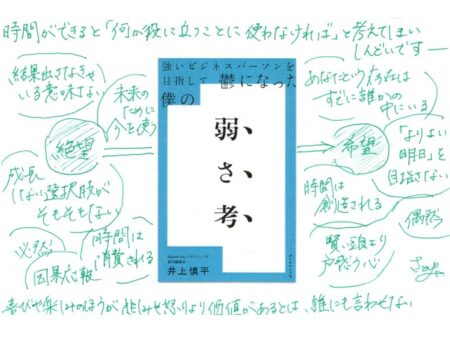 時間ができると「何か役に立つことに使わなければ」と考えてしまい
しんどいです
結果出さなきゃ
いる意味ない
未来の
ために
今を使う
絶望
成長
しない選択肢が
そもそもない
必然
因果応報
時間は
消費される
強いビジネスパーソンを
目指して鬱になった
僕の
弱さ考
井上慎平
ダイヤモンド社
あなたという存在は
すでに誰かの
中にいる
希望
「よりよい
明日」を
目指さない
時間は
創造される
偶然
賢い頭より
戸惑う心
喜びや楽しみのほうが悲しみや怒りより価値があるとは、誰にも言わせない